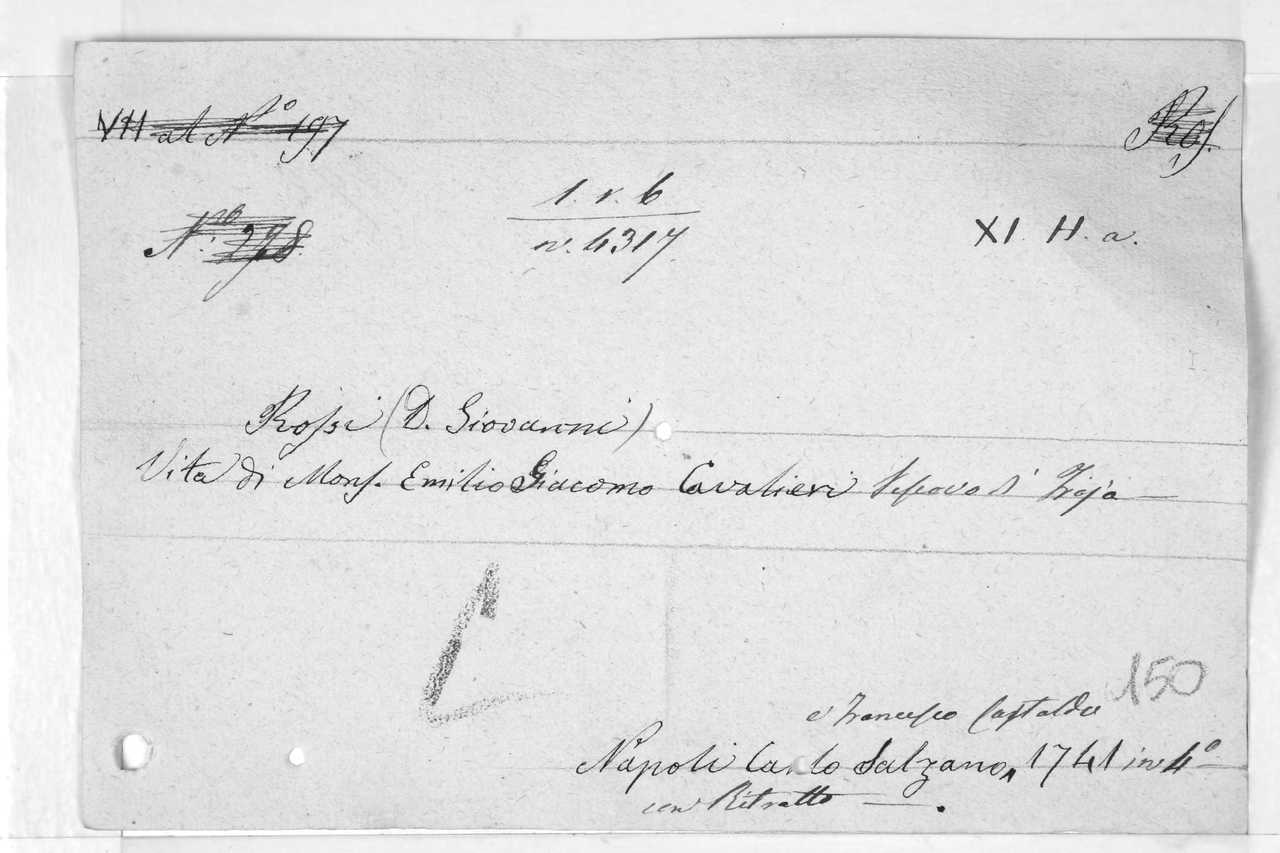 VII al N.º 197
Ros.
1. r. 6
N.ro 278.
n. 4317
XI. H. a.
Rossi (D. Giovanni)
Vita di Mons. Emilio Giacomo Cavalieri Vescovo di Troja —
150
e Francesco Castaldo
Napoli Carlo Salzano, 1741 in 4º
con Ritratto — .